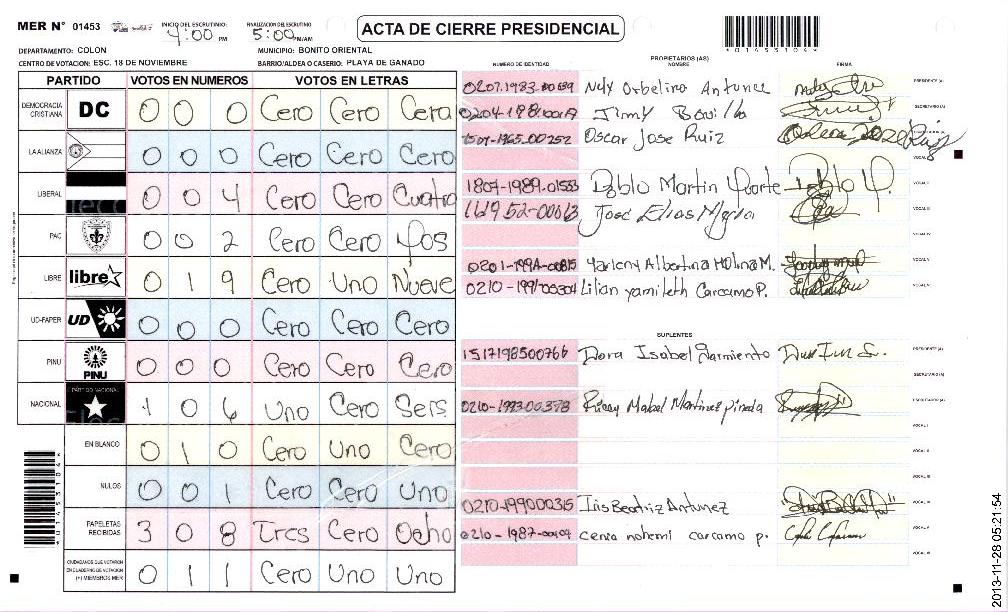 MER N° 01453
INICIO DEL ESCRUTINIO
4:00 PM
FINALIZACION DEL ESCRUTINIO
5:00 PM/AM
ACTA DE CIERRE PRESIDENCIAL
*01453104*
DEPARTAMENTO: COLON
MUNICIPIO: BONITO ORIENTAL
CENTRO DE VOTACION: ESC. 18 DE NOVIEMBRE
BARRIO/ALDEA O CASERIO: PLAYA DE GANADO
PARTIDO VOTOS EN NUMEROS VOTOS EN LETRAS
DEMOCRACIA CRISTIANA DC 0 0 0 Cero Cero Cero
LA ALIANZA 0 0 0 Cero Cero Cero
LIBERAL 0 0 4 Cero Cero Cuatro
PAC 0 0 2 Cero Cero Dos
LIBRE libre 0 1 9 Cero Uno Nueve
UD-FAPER UD 0 0 0 Cero Cero Cero
PINU PINU 0 0 0 Cero Cero Cero
NACIONAL PARTIDO NACIONAL 1 0 6 Uno Cero Seis
EN BLANCO 0 1 0 Cero Uno Cero
NULOS 0 0 1 Cero Cero Uno
PAPELETAS RECIBIDAS 3 0 8 Tres Cero Ocho
CIUDADANOS QUE VOTARON EN CUADERNO DE VOTACION (+) MIEMBROS MER 0 1 1 Cero Uno Uno
PROPIETARIOS (AS)
NUMERO DE IDENTIDAD NOMBRE FIRMA
Orbelina Antunez PRESIDENTE (A)
Jimmy SECRETARIO (A)
1507-1965-00252 Oscar Jose Ruiz
VOCAL I
1807-1989-01533 Pablo Martin VOCAL II
José Elias VOCAL III
VOCAL IV
Marleny Albertina Molina M. VOCAL V
Lilian yamileth Carcamo P. VOCAL VI
SUPLENTES
1517198500766 Dora Isabel Sarmiento PRESIDENTE (A)
SECRETARIO (A)
0210-1993-00378 Mabel Martinez Pineda ESCRUTADOR (A)
VOCAL I
VOCAL II
VOCAL III
0210-199000315 Iris Beatriz Antunez VOCAL IV
nohemi carcamo p. VOCAL V
VOCAL VI
*01453104*
2013-11-28 05:21:54